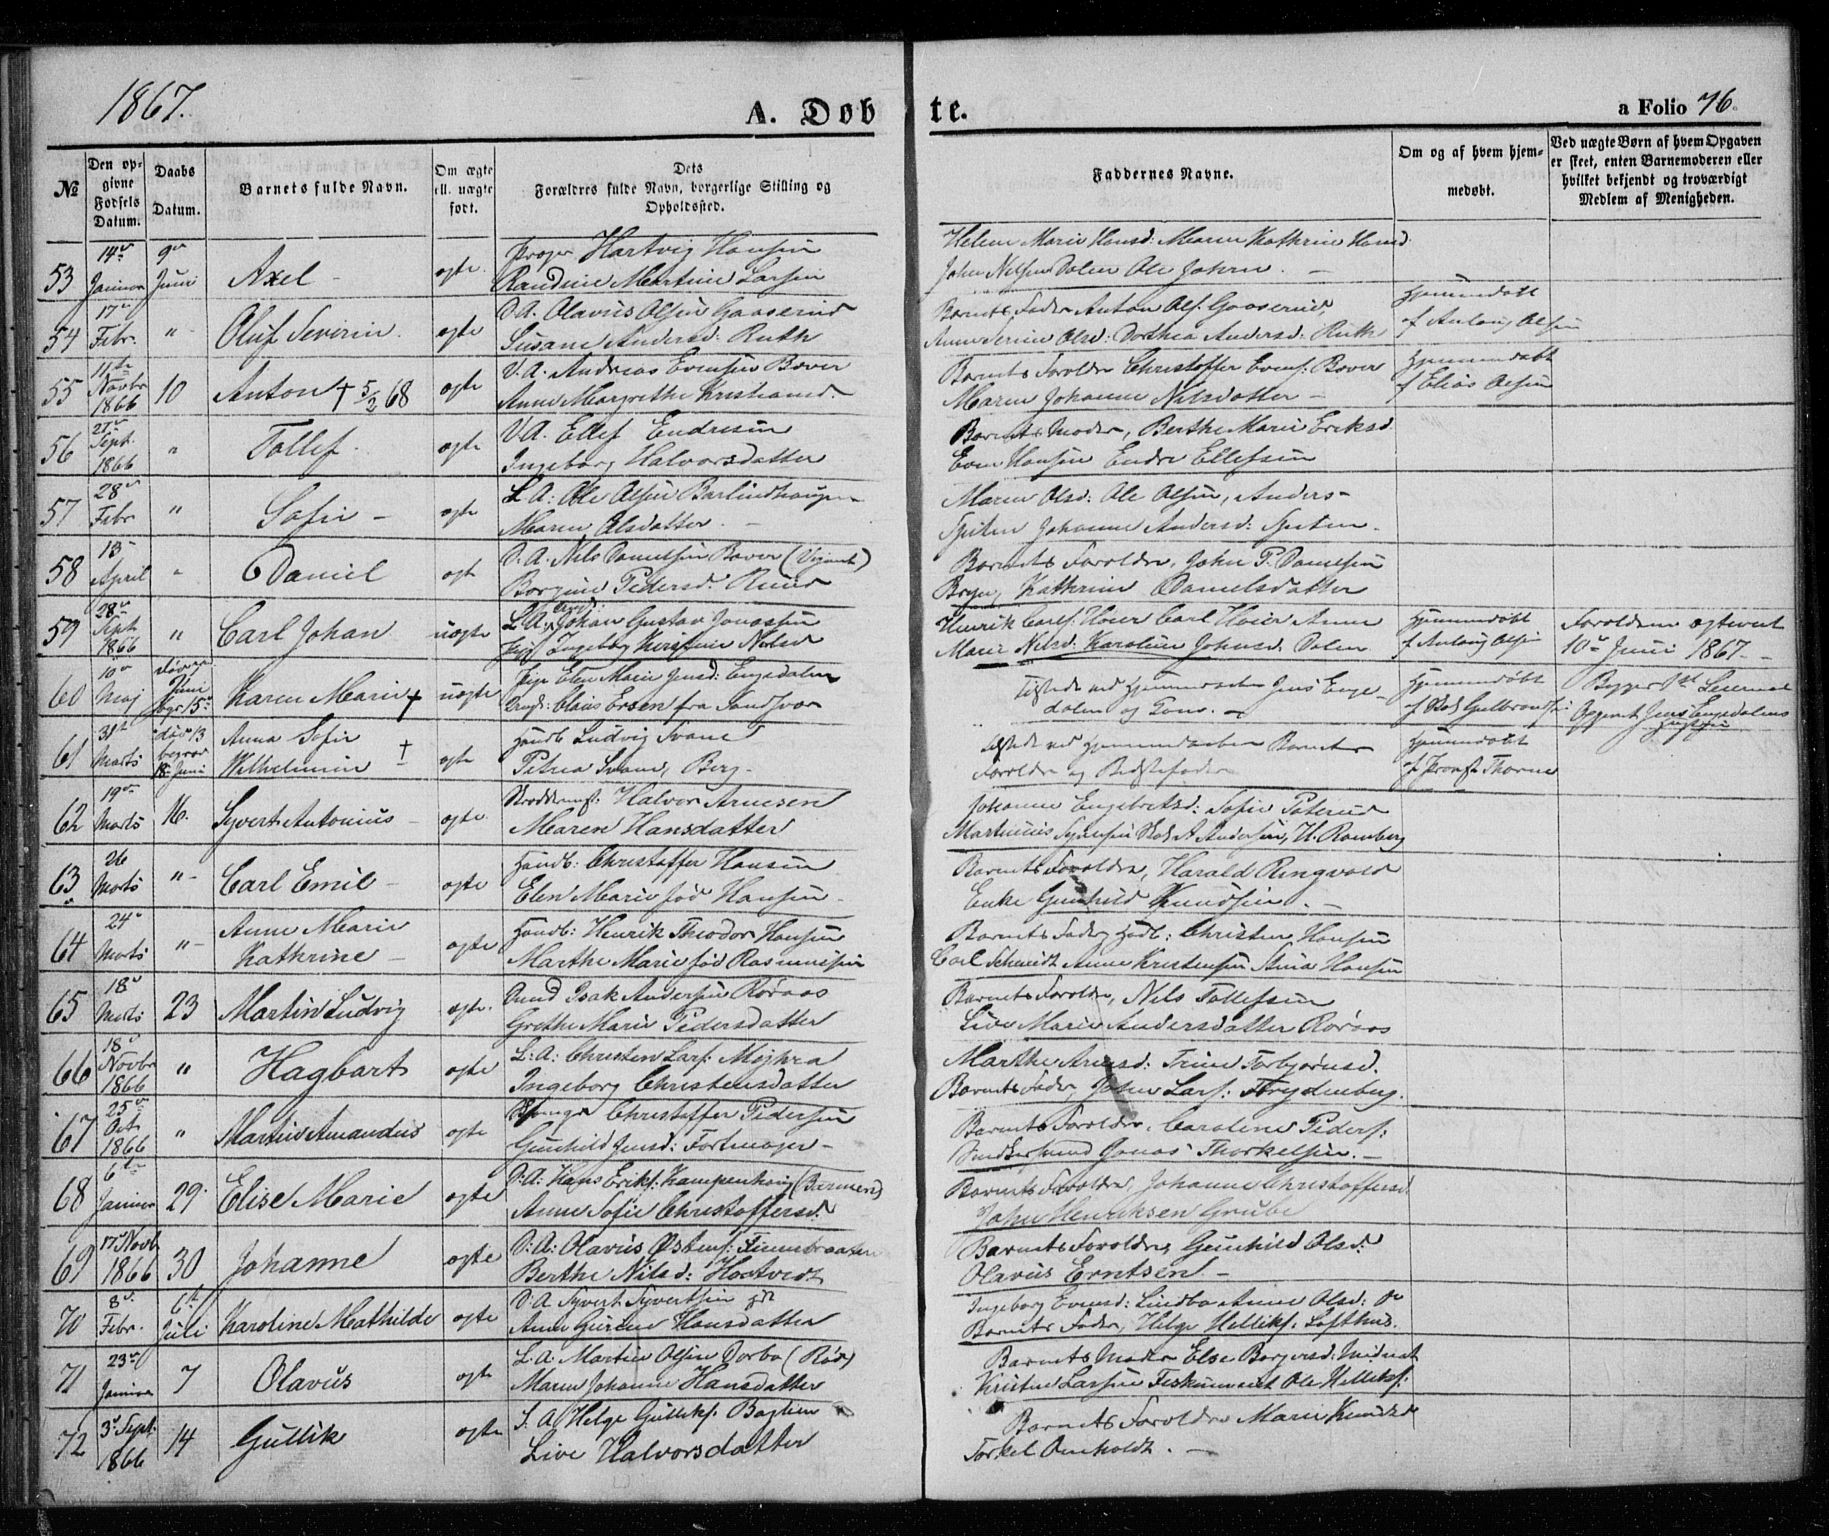 1867.
A. Døbte.
a Folio 76.
№
Den opgivne Fødsels Datum.
Daabs Datum.
Barnets fulde Navn.
Om ægte ell. uægte født.
Dets Forældres fulde Navn, borgerlige Stilling og Opholdssted.
Faddernes Navne.
Om og af hvem hjemmedøbt.
Ved uægte Børn af hvem Opgaven er skeet, enten Barnemoderen eller hvilket bekjendt og troværdigt Medlem af Menigheden.
53 14de Januar 9de Juni Axel - ægte Hartvig Hansen
Randine Martine Larsen
Helene Marie Hansd: Maren Kathrine Hansd
John Nilsen Dalen Ole Johns. -
54 17de Febr. " Oluf Severin ægte D.A. Olavus Olsen Gaaserud
Susane Andersd: Ruth
Barnets Fader Anton Ols: Gaaserud,
Anne Serine Olsd: Dorthea Andersd: Ruth
Hjemmedøbt
af Anlaug Olsen
55 11te Novbr 1866 10 Anton † 5/2 68 ægte D.A: Andreas Evensen Bøver
Anne Margrethe Kristiansd.
Barnets Forældre Christoffer Evens: Bøver
Maren Johanne Nilsdatter -
Hjemmedøbt
af Elias Olsen
56 21de Sept. 1866 " Tollef ægte D.A. Ellef Endresen
Ingeborg Halvorsdatter
Barnets Moder, Berthe Marie Eriksd
Even Hansen Endre Ellefsen
57 28de Febr " Sofie - ægte L.A: Ole Olsen Barlindhaugen
Maren Olsdatter. -
Maren Olsd: Ole Olsen, Anders
Spiten Johanne Andersd: Spiten.
58 13 April " Daniel ægte D.A. Nils Danielsen Bøver (Vejnæs)
Børgine Pedersd. Ruud
Barnets Forældre, John P. Danielsen
Kathrine Danielsdatter
59 28de Sept 1866 " Carl Johan uægte L.A. Johan Gustav Jonassen
Pige Ingeborg Kirstine Nilsd
Henrik Carls: Høier Carl Høier Anne
Marie Nilsd: Karoline Johnsd: Dalen
Hjemmedøbt
af Anlaug Olsen
Forældrene ægteviet
10de Juni 1867 -
60 10de Maj Juni begr 15de Karen Marie † uægte Pige Elen Marie Jensd: Engedalen
Ungk: Claus Ersen fra Sandsvær
Tilstede ved Hjemmedaaben Jens Engedalen og Kone. -
Hjemmedøbt
Opgivet Jens Engedalens
61 31te Marts død 13 begrav 18 Juni Anna Sofie
Wilhelmine † ægte Handb Ludvig Svane
Petrea Svane, Berg.
Tilstede ved Hjemmedaaben Barnets
Forældre og Bedstefader
Hjemmedøbt
af Provst Thorne
62 19de Marts 16. Syvert Antonius - ægte Skræddermst: Halvor Arnesen
Maren Hansdatter
Johanne Engebretsd: Sofie Peterud
Martinius Syversen A Andersen, H. Ramberg
63 26 Marts " Carl Emil - ægte Handb: Christoffer Hansen
Elen Marie fød Hansen -
Barnets Forældre, Harald Ringvold
Enke Gunhild Knudsen. -
64 24de Marts " Anne Marie
Kathrine - ægte Handb: Henrik Theodor Hansen
Marthe Marie fød Rasmussen
Barnets Fader, Hdb: Christen Hansen
Carl Schmidt Anne Kristensen Stina Hansen
65 18de Marts 23 Martin Ludvig ægte. Isak Andersen Røraas
Grethe Marie Pedersdatter
Barnets Forældre, Nils Tollefsen
Live Marie Andersdatter Røraas
66 18de Novbr 1866 " Hagbart ægte L:A: Christen Lars: Mejhra
Ingeborg Christensdatter
Marthe Arnesd: Trine Torbjørnsd.
Barnets Fader, John Lars: Frydenberg.
67 25de Oct 1866 " Martin Amandus ægte Christoffer Pedersen
Gunhild Jensd: Fartmager -
Barnets Forældre, Caroline Peders:
Jonas Thorkelsen. -
68 6te Januar 29. Elise Marie ægte D.A: Hans Eriks: Kampenhaug (Barmen)
Anne Sofie Christoffersd.
Barnets Forældre, Johanne Christoffersd.
John Henriksen Grube
69 17de Novb 1866 30 Johanne ægte D:A: Olavus Østens: Finnebraaten
Berthe Nilsd: Hostvedt
Barnets Forældre, Gunhild Olsd:
Olavus Erntsen -
70 8de Febr. 6te Juli Karoline Mathilde ægte D:A Syvert Syvertsen
Anne Gurine Hansdatter
Ingeborg Evensd: Lindbo Anne Olsd:
Barnets Fader, Helge Helliks: Lofthus.
71 23de Januar 7 Olavus ægte L.A Martin Olsen Dorbo (Røed)
Maren Johanne Hansdatter
Barnets Moder Else Børgersd: Midnat
Kristen Larsen Fiskumeiet Ole Helliks:
72 3de Sept. 1866 14 Gullik ægte L.A Helge Gulliks: Bøglien
Live Halvorsdatter
Barnets Forældre Marie Knudsd
Torkel Omholdt. -